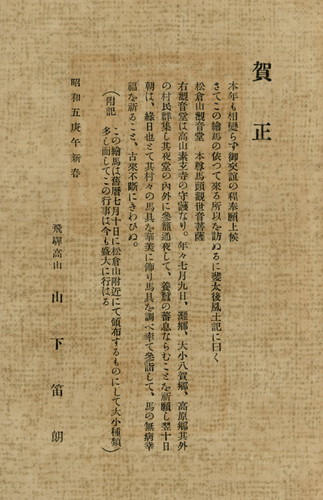 賀正
本年も相變らず御交誼の程奉願上候
さてこの繪馬の依つて來る所以を訪ぬるに斐太後風土記に曰く
松倉山觀音堂　本尊馬頭觀世音菩薩
右觀音堂は高山素玄寺の守護なり。年々七月九日、灘鄕、大小八賀鄕、高原鄕其外
の村民群集し其夜堂の內外に參籠通夜して、養蠶の蕃息ならむことを祈願し翌十日
朝は、緣日也とて其村々の馬具を華美に飾り馬具を調べ牽て參詣して、馬の無病幸
福を祈ること、古來不斷にきわひぬ。
（附記　この繪馬は舊曆七月十日に松倉山附近にて頒布するものにして大小種類
多し而してこの行事は今も盛大に行はる）
昭和五庚午新春
飛驒高山　山下笛朗